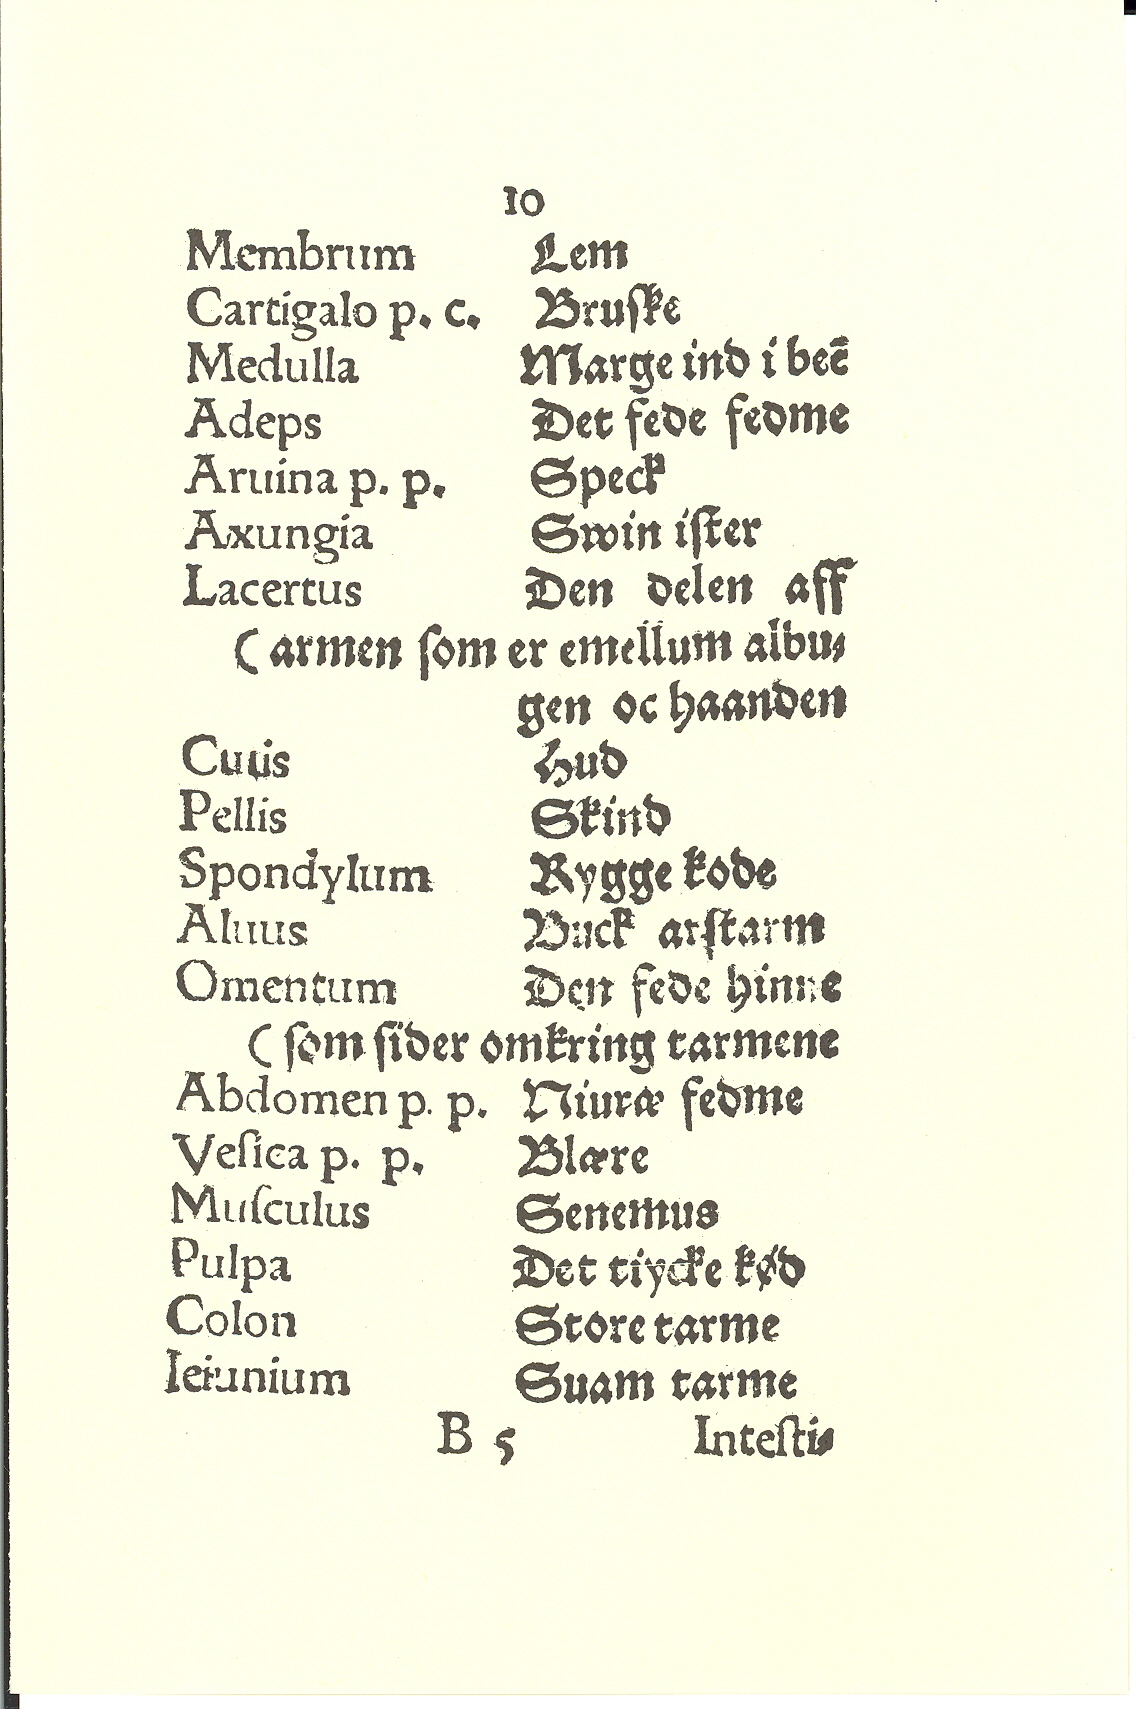 10
Membrum Lem
Cartigalo p. c. Bruſke
Medulla Marge ind i beē
Adeps Det fede fedme
Aruina p. p. Speck
Axungia Swin iſter
Lacertus Den delen aff
( armen ſom er emellum albu⸗
gen oc haanden
Cutis Hud
Pellis Skind
Spondylum Rygge kode
Aluus Buck arſtarm
Omentum Den fede hinne
( ſom ſider omkring tarmene
Abdomen p. p. Niuræ fedme
Veſica p. p. Blære
Muſculus Senemus
Pulpa Det tiycke kød
Colon Store tarme
Ieiunium Suam tarme
B 5 Inteſti⸗